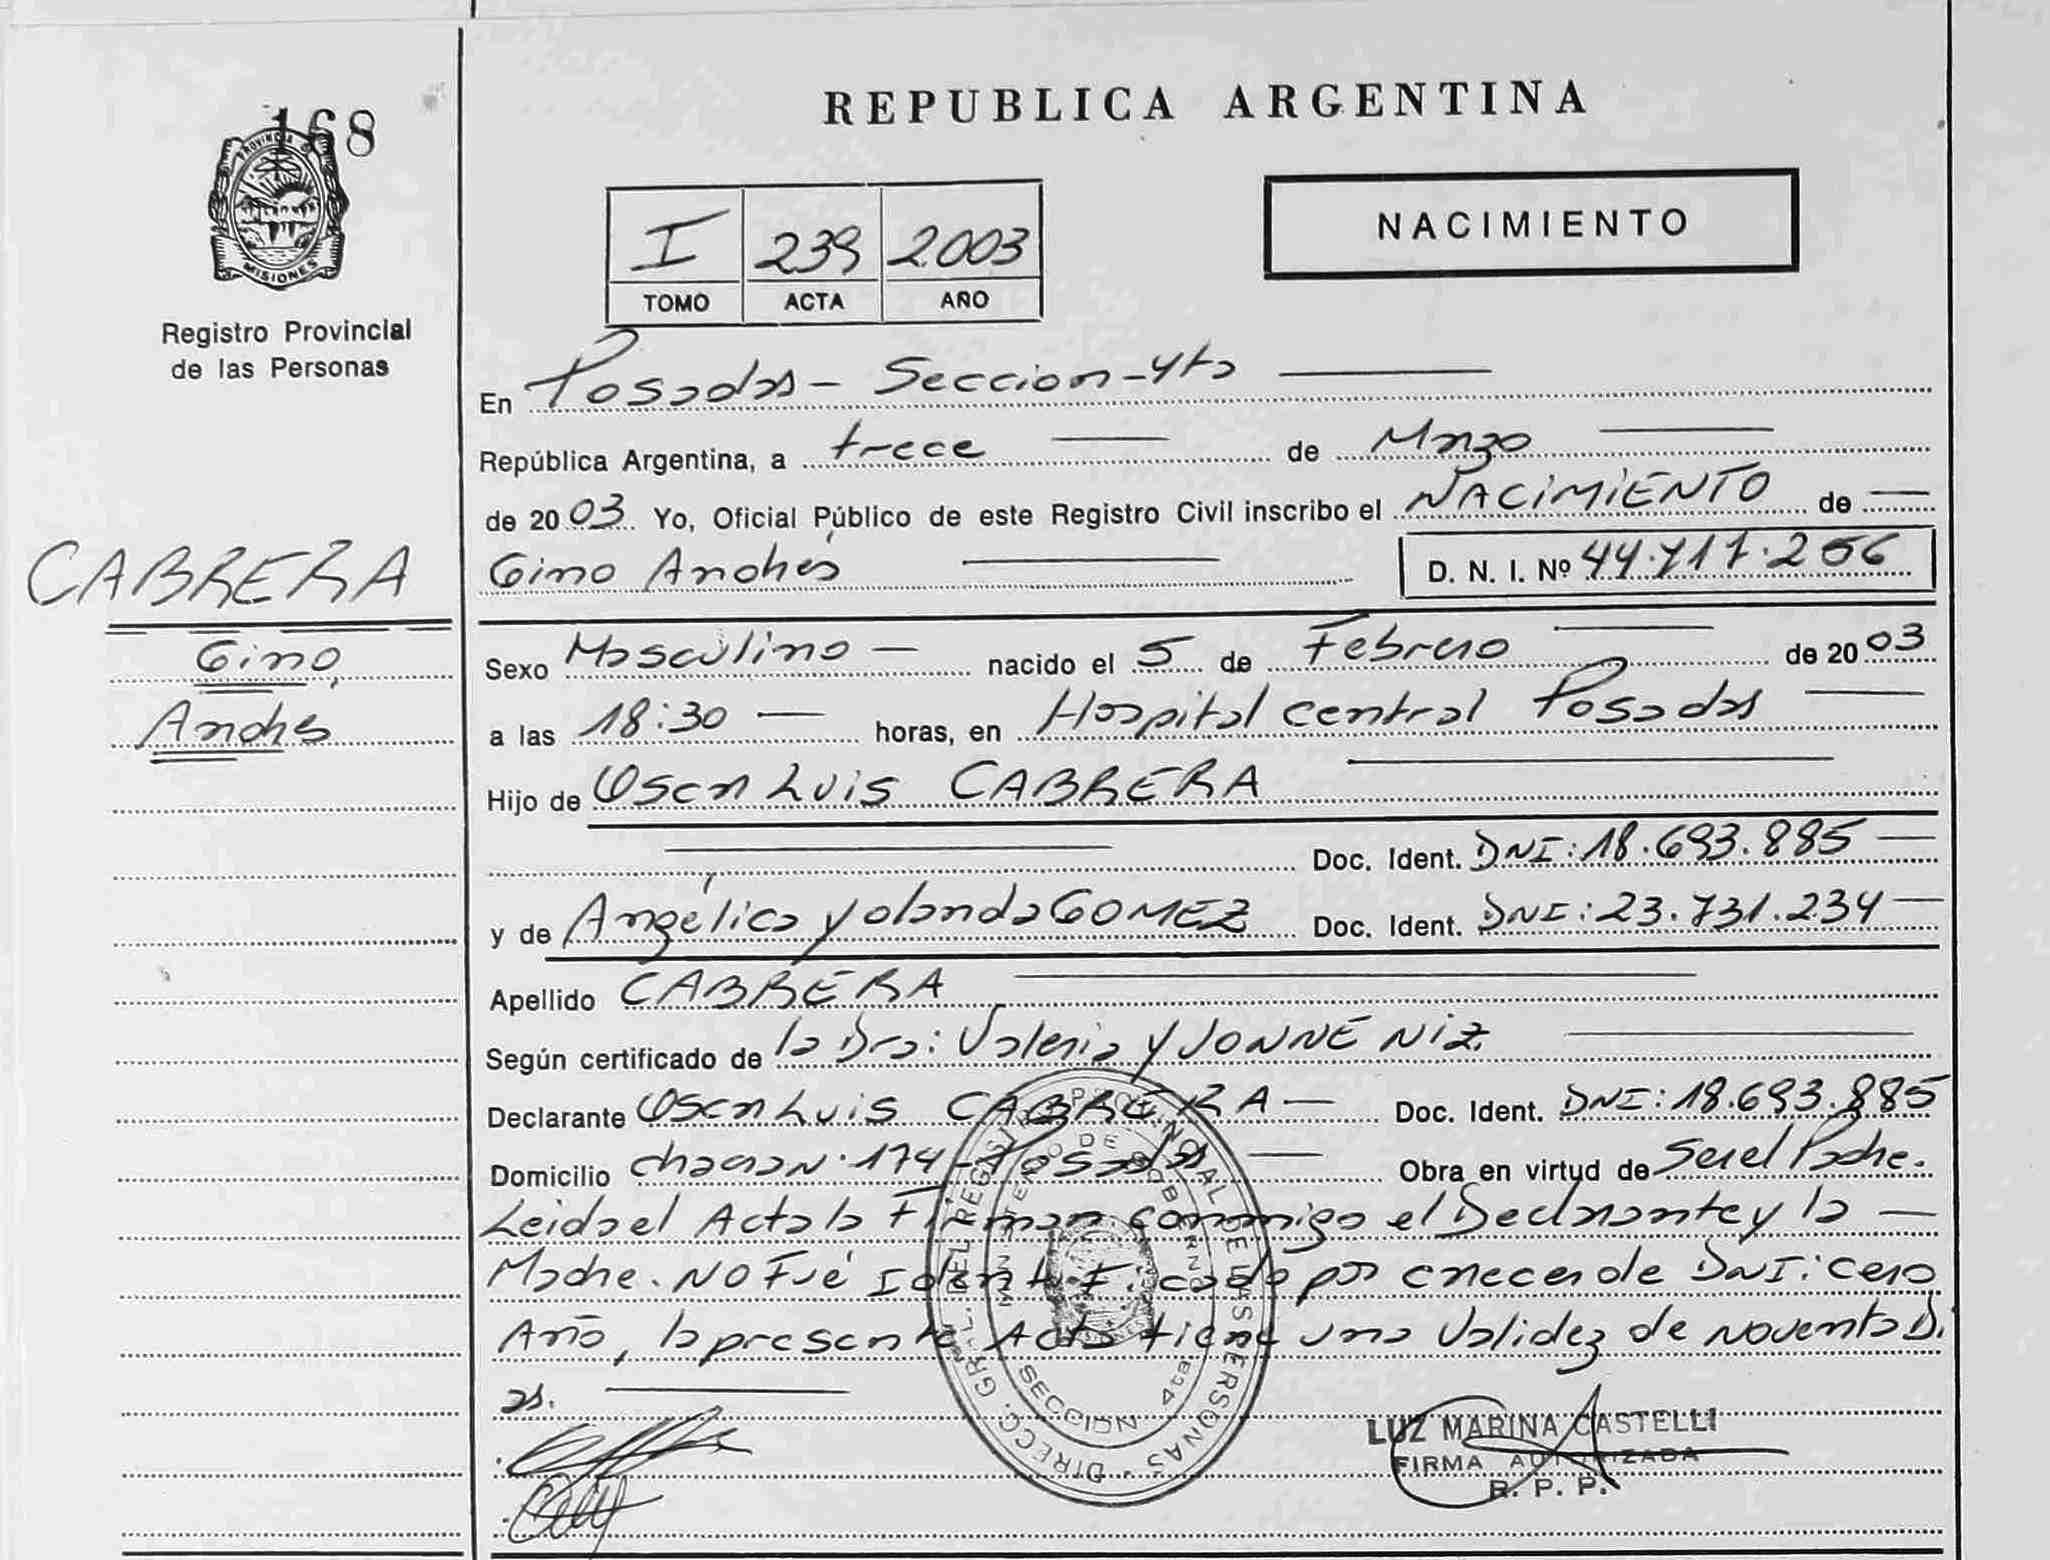 168
PROVINCIA DE
MISIONES
Registro Provincial
de las Personas
CABRERA
Gino
Andrés
REPUBLICA ARGENTINA
I 239 2003
TOMO ACTA AÑO
NACIMIENTO
En Posadas - Seccion - 4ta
República Argentina, a trece de Marzo
de 2003 Yo, Oficial Público de este Registro Civil inscribo el NACIMIENTO de
Gino Andrés D. N. I. Nº 44.717.256
Sexo Masculino nacido el 5 de Febrero de 2003
a las 18:30 horas, en Hospital central Posadas
Hijo de Oscar Luis CABRERA
Doc. Ident. DNI: 18.693.885
y de Angélica Yolanda GOMEZ Doc. Ident. DNI: 23.731.234
Apellido CABRERA
Según certificado de la Dra: Valeria YVONNE NIZ
Declarante Oscar Luis CABRERA Doc. Ident. DNI: 18.693.885
Domicilio 174 - Posadas Obra en virtud de Ser el Padre.
Leida el Acta la Firman conmigo el Declarante y la
Madre. NO Fué Identificado por carecer de DNI: Cero
Año, la presente Acta tiene una Validez de Noventa Di
as.
DIRECC. GRAL. DEL REGISTRO PROVINCIAL DE LAS PERSONAS
MINISTERIO DE GOBIERNO
SECCION 4ta
LUZ MARINA CASTELLI
FIRMA AUTORIZADA
R. P. P.